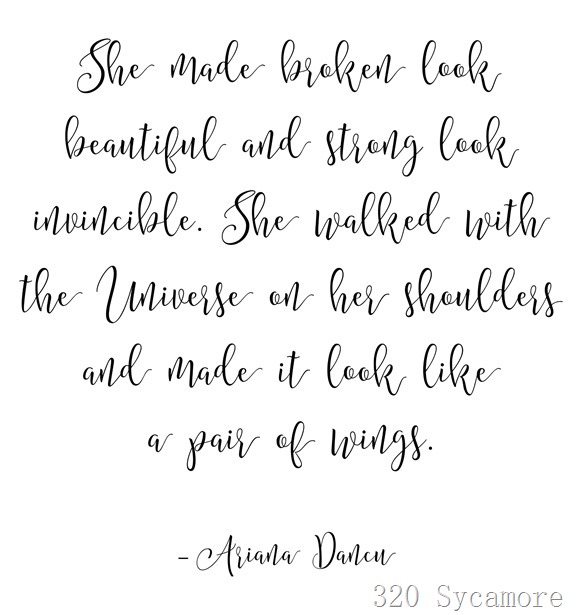 She made broken look
beautiful and strong look
invincible. She walked with
the Universe on her shoulders
and made it look like
a pair of wings.
- Ariana Dancu
320 Sycamore